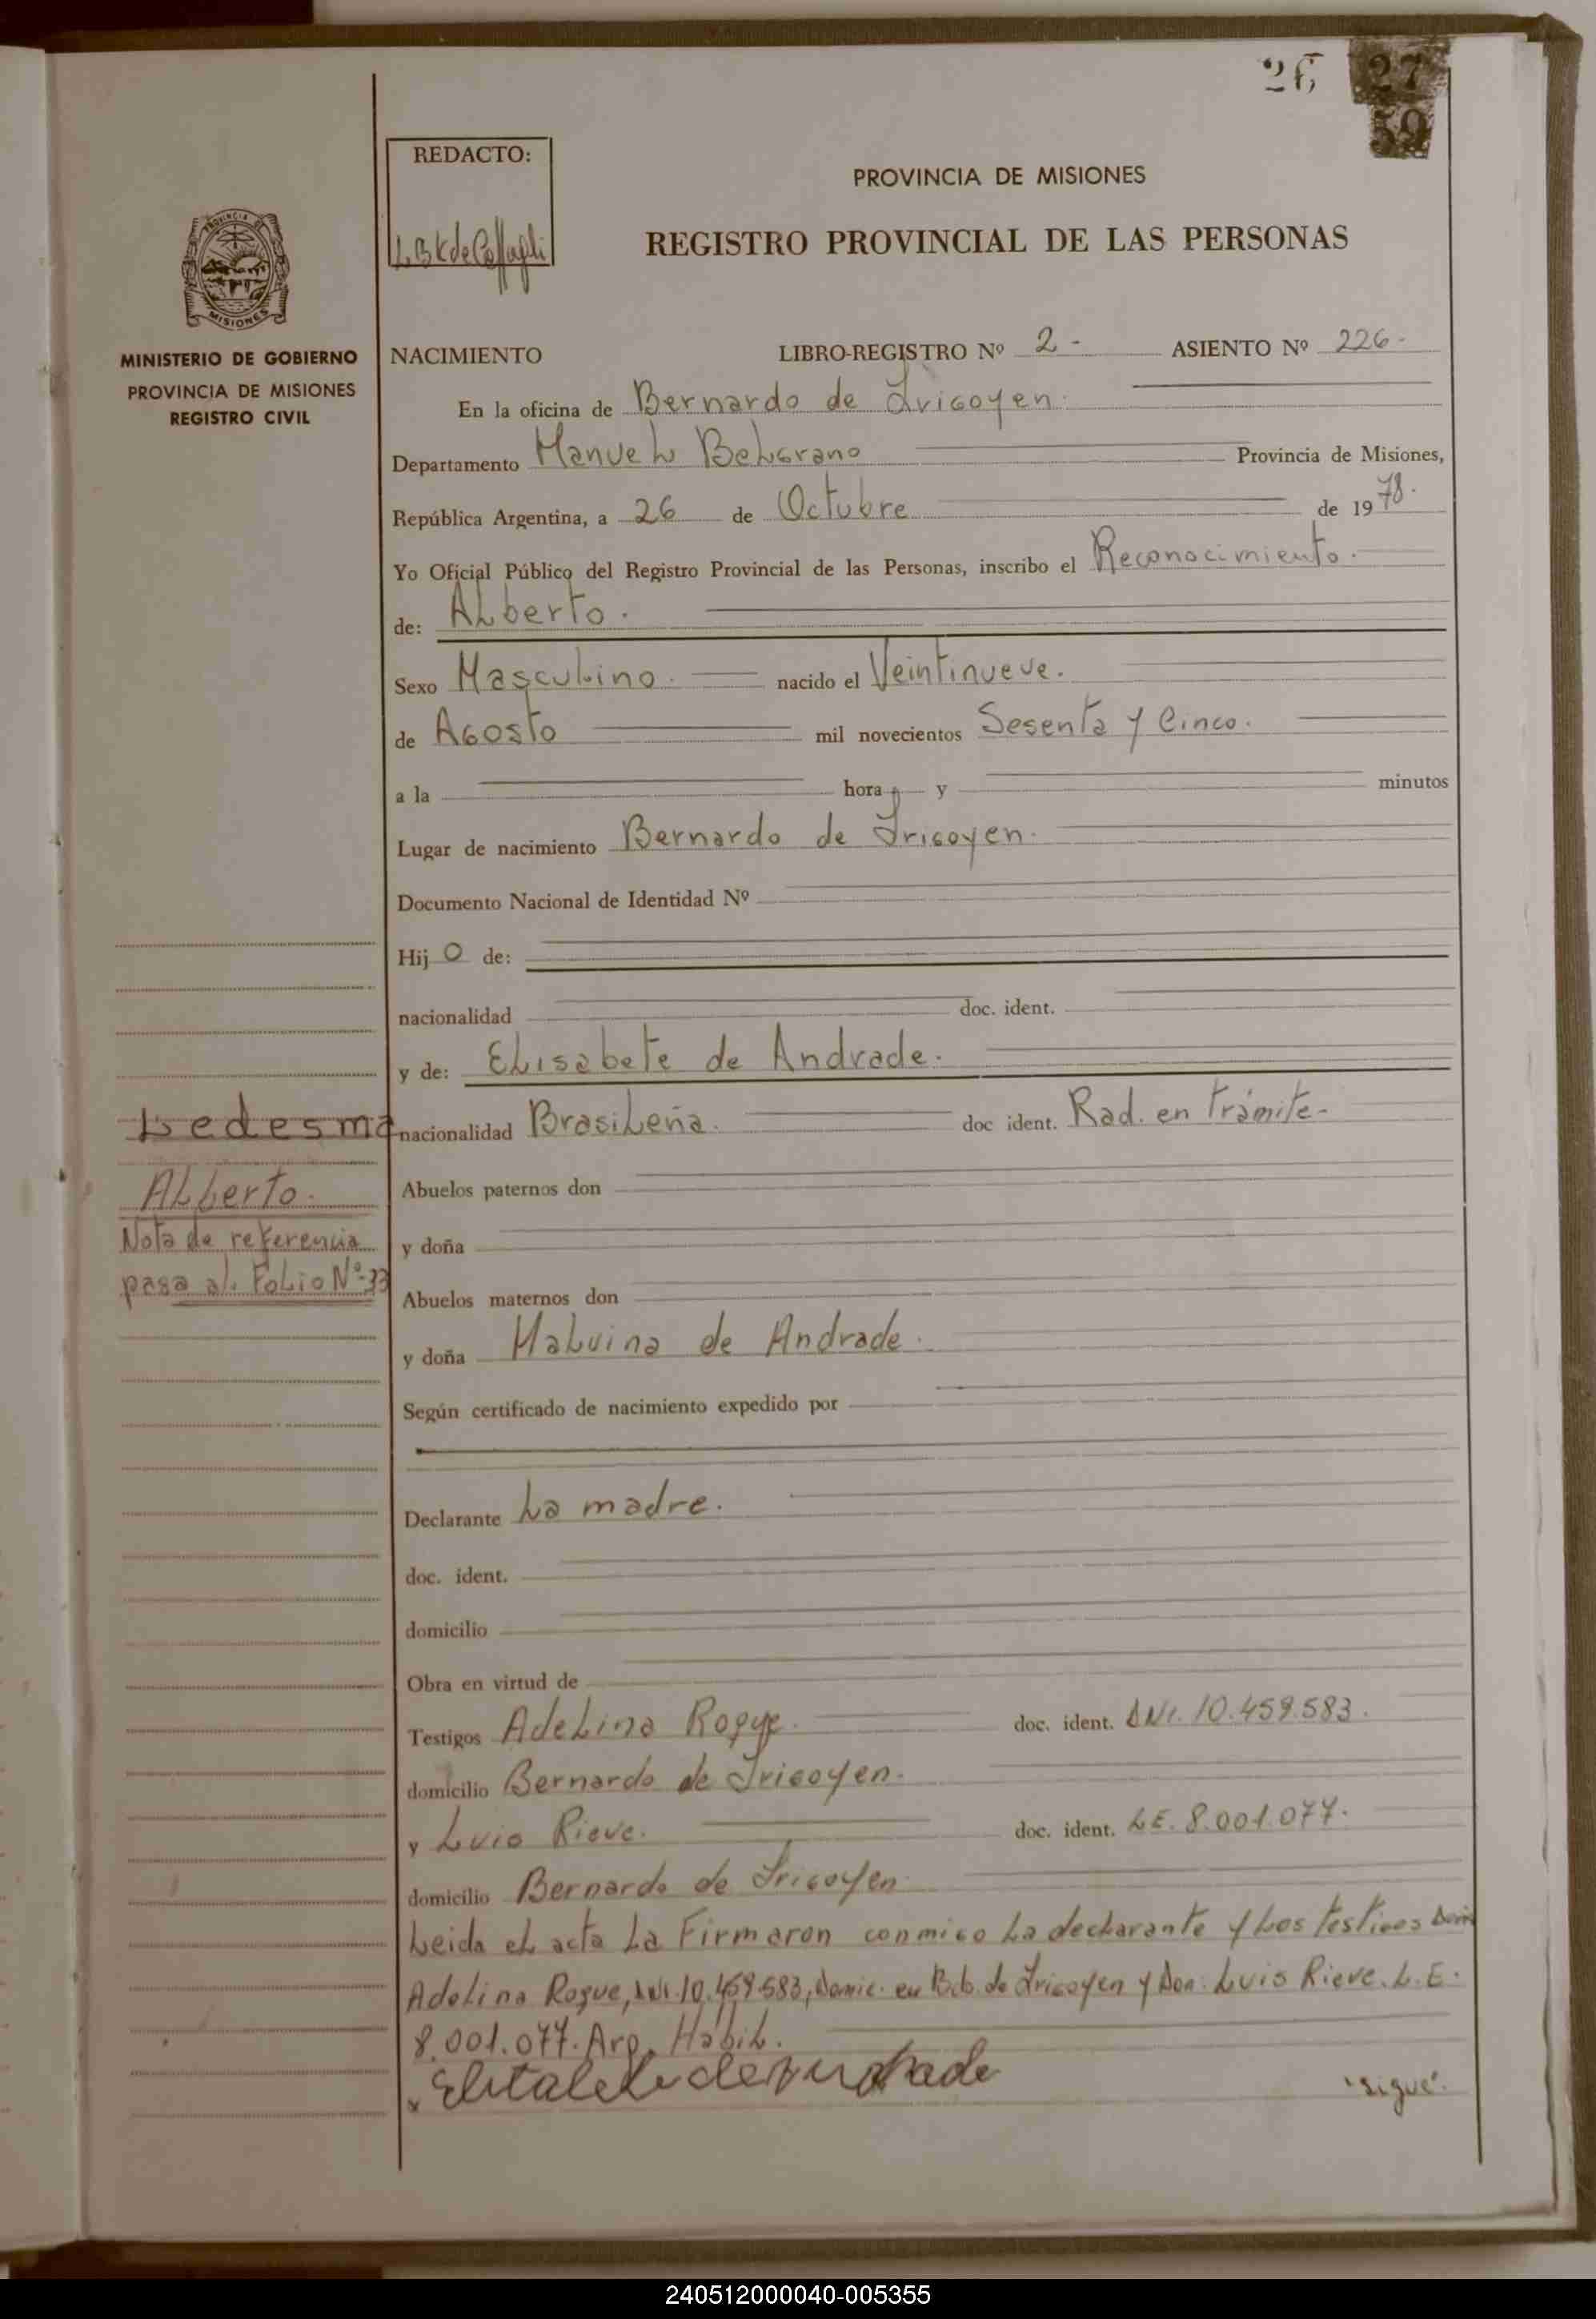 26 27
59
REDACTO:
PROVINCIA DE MISIONES
REGISTRO PROVINCIAL DE LAS PERSONAS
PROVINCIA DE
MISIONES
MINISTERIO DE GOBIERNO
PROVINCIA DE MISIONES
REGISTRO CIVIL
NACIMIENTO LIBRO-REGISTRO Nº 2- ASIENTO Nº 226-
En la oficina de Bernardo de Irigoyen.
Departamento Manuel Belgrano Provincia de Misiones,
República Argentina, a 26 de Octubre de 1978.
Yo Oficial Público del Registro Provincial de las Personas, inscribo el Reconocimiento.
de: Alberto.
Sexo Masculino. nacido el Veintinueve.
de Agosto mil novecientos Sesenta y Cinco.
a la hora y minutos
Lugar de nacimiento Bernardo de Irigoyen.
Documento Nacional de Identidad Nº
Hij o de:
nacionalidad doc. ident.
y de: Elisabete de Andrade.
nacionalidad Brasileña. doc ident. Rad. en trámite-
Ledesma
Alberto.
Nota de referencia
pasa al Folio Nº 33
Abuelos paternos don
y doña
Abuelos maternos don
y doña Malvina de Andrade.
Según certificado de nacimiento expedido por
Declarante La madre.
doc. ident.
domicilio
Obra en virtud de
Testigos Adelina Roque. doc. ident. DNI. 10.459.583.
domicilio Bernardo de Irigoyen.
y Luis Rieve. doc. ident. L.E. 8.001.077.
domicilio Bernardo de Irigoyen.
Leida el acta la Firmaron conmigo la declarante y los testigos Doña
Adelina Roque, DNI. 10.459.583, Domic. en Bdo. de Irigoyen y Don. Luis Rieve. L.E.
8.001.077. Arg. Habil.
"sigue".
240512000040-005355